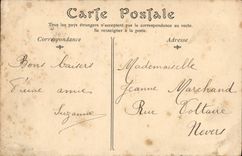 Carte Postale
Tous les pays étrangers n'acceptent pas la correspondance au verso.
Se renseigner à la poste.
Correspondance
Adresse
Bons baisers
d'une amie
Suzanne
Mademoiselle
Jeanne Marchand
Rue Voltaire
Nevers